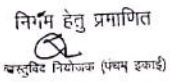 निर्गम हेतु प्रमाणित
वास्तुविद नियोजक (पंचम इकाई)